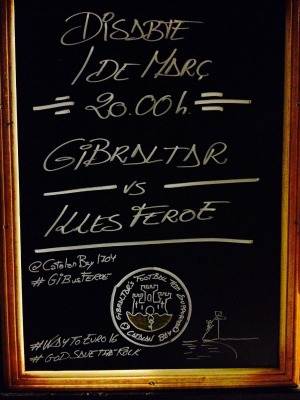 DISABTE
1 DE MARÇ
20.00h.
GIBRALTAR
VS
ILLES FEROE
@Catalan By 1704
# GIBvsFEROE
GIBRALTAR'S FOOTBALL FAN
CATALAN BAY
#WAYTOEURO16
#GODSAVETHEFOLK